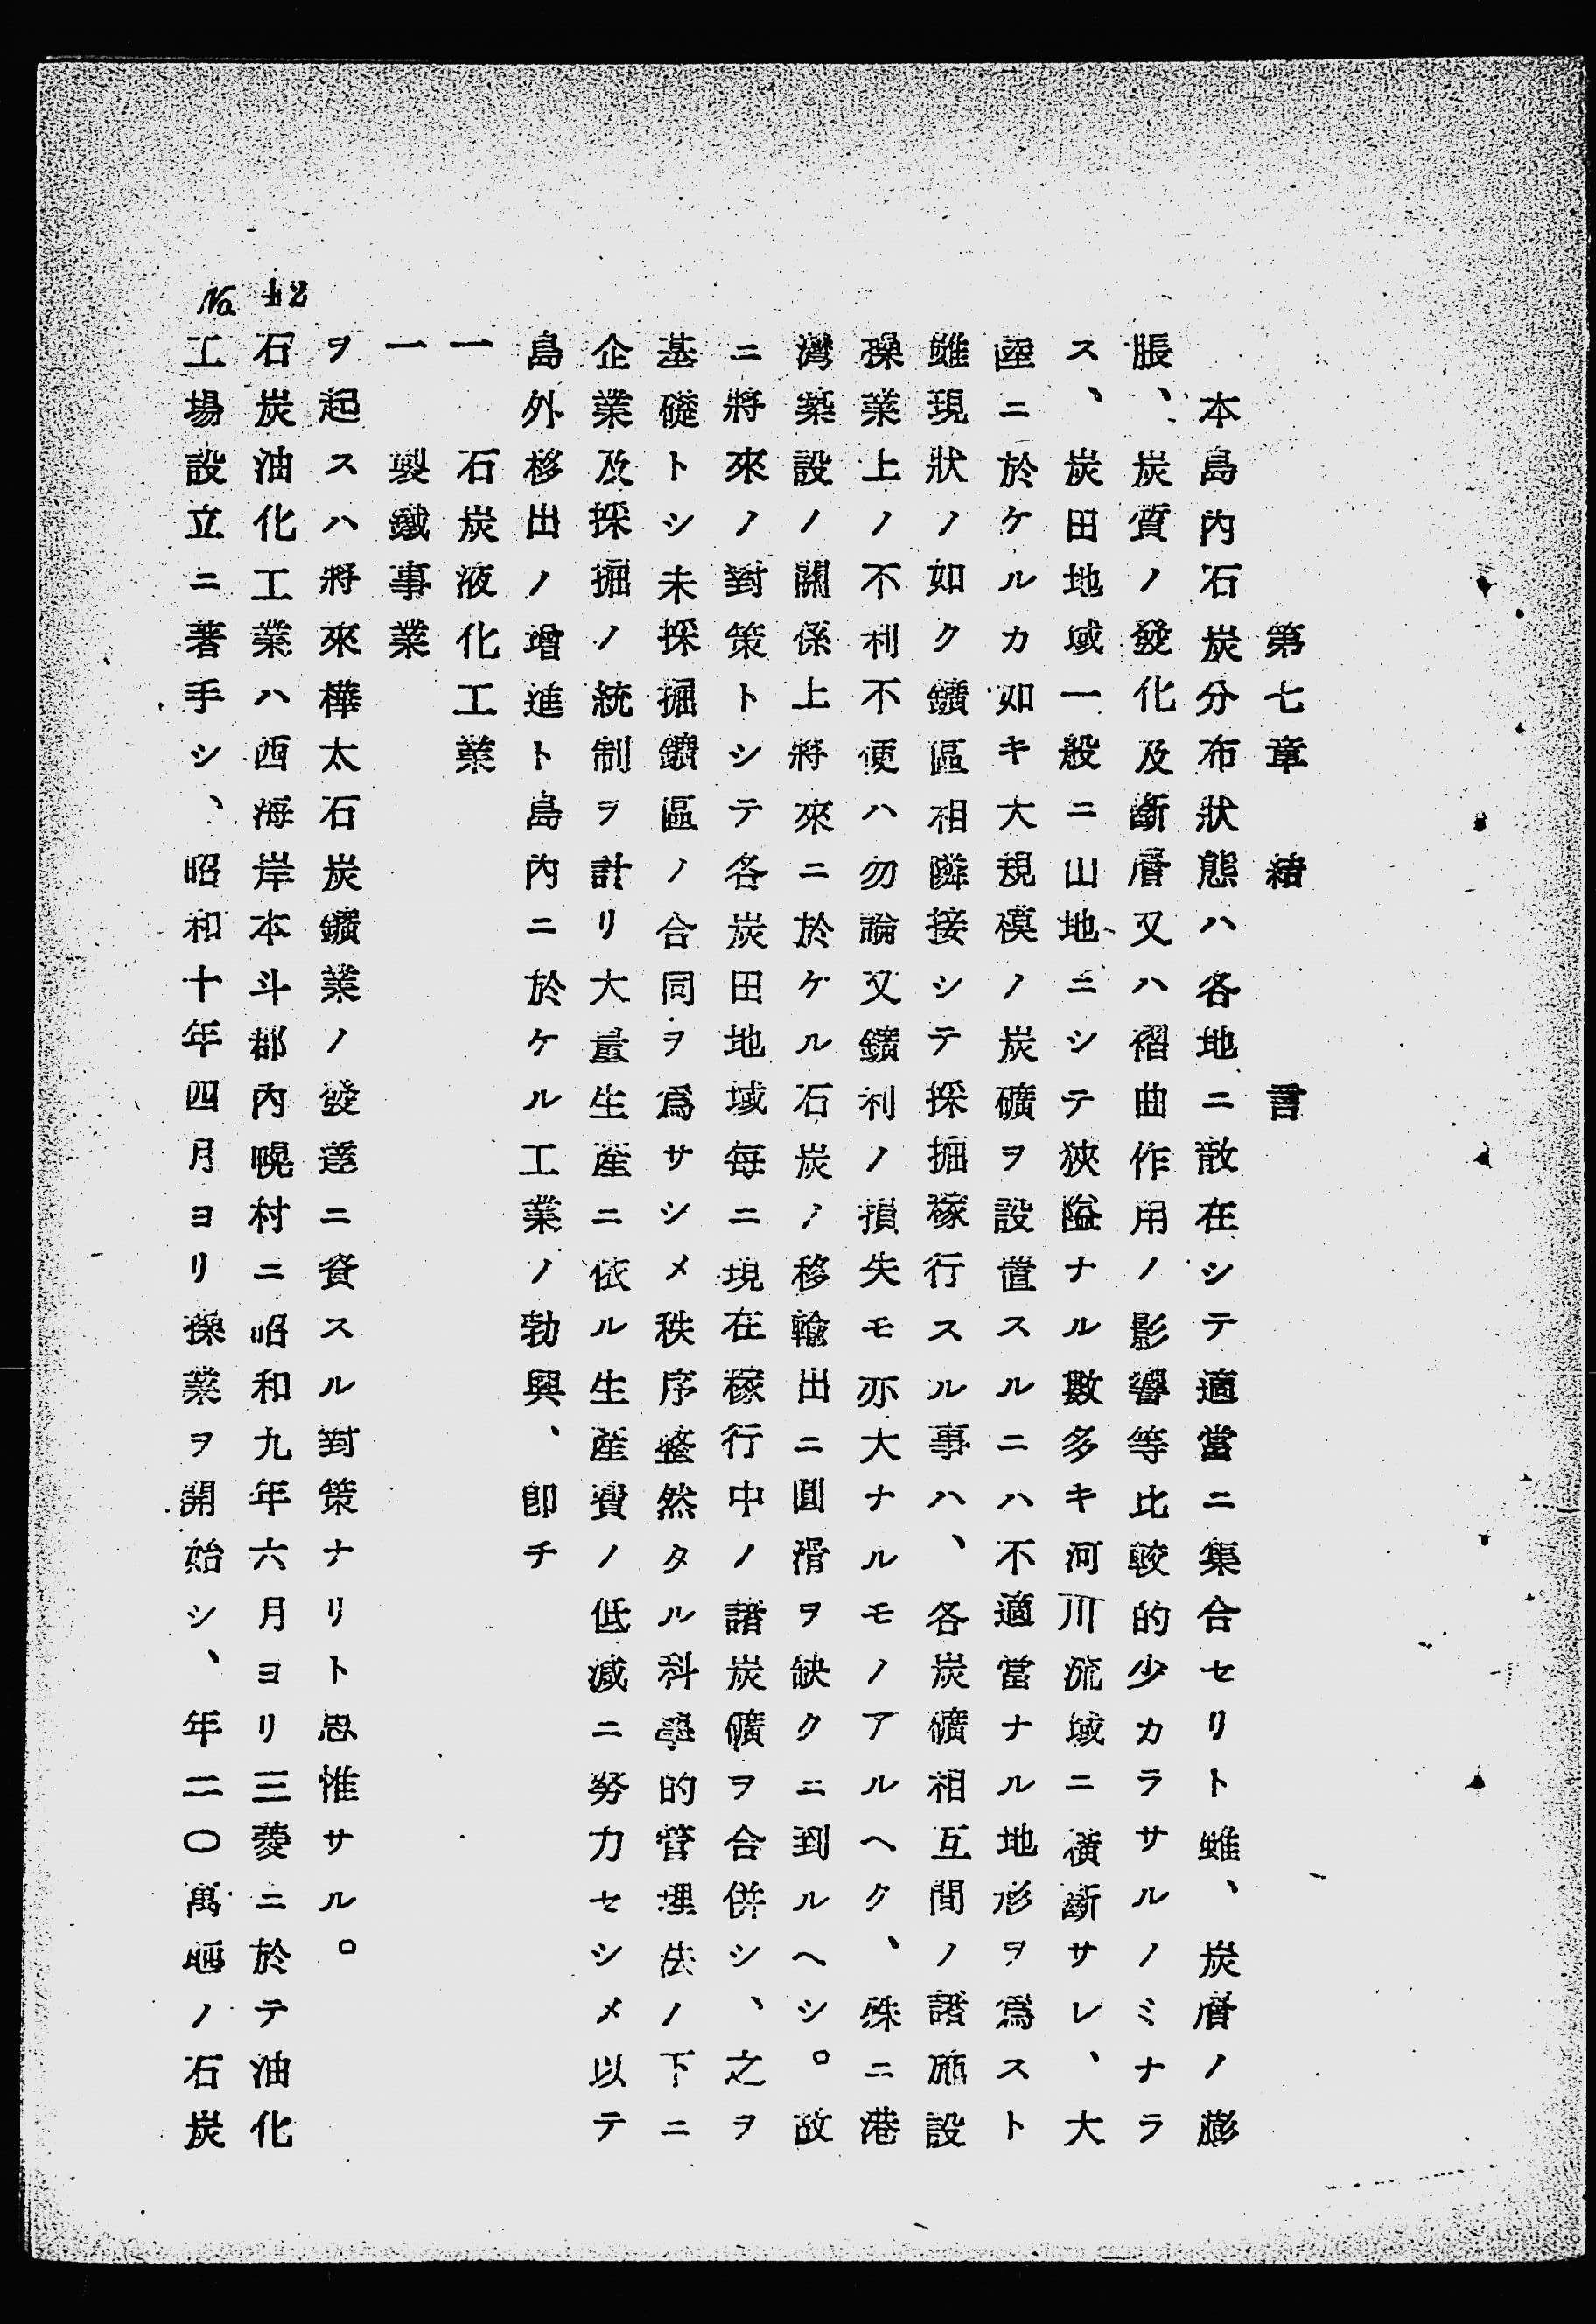 第七章　緒　言
本島內石炭分布狀態ハ各地ニ散在シテ適當ニ集合セリト雖、炭層ノ膨
脹、炭質ノ發化及斷層又ハ褶曲作用ノ影響等比較的少カラサルノミナラ
ス、炭田地域一般ニ山地ニシテ狹隘ナル數多キ河川流域ニ橫斷サレ、大
陸ニ於ケルカ如キ大規模ノ炭礦ヲ設置スルニハ不適當ナル地形ヲ爲スト
雖現狀ノ如ク鑛區相隣接シテ採掘稼行スル事ハ、各炭礦相互間ノ諸施設
操業上ノ不利不便ハ勿論又鑛利ノ損失モ亦大ナルモノアルヘク、殊ニ港
灣築設ノ關係上將來ニ於ケル石炭ノ移輸出ニ圓滑ヲ缺クニ到ルヘシ。故
ニ將來ノ對策トシテ各炭田地域每ニ現在稼行中ノ諸炭礦ヲ合併シ、之ヲ
基礎トシ未採掘鑛區ノ合同ヲ爲サシメ秩序整然タル科學的管理法ノ下ニ
企業及採掘ノ統制ヲ計リ大量生產ニ依ル生產費ノ低減ニ努力セシメ以テ
島外移出ノ增進ト島內ニ於ケル工業ノ勃興、卽チ
一　石炭液化工業
一　製鐵事業
ヲ起スハ將來樺太石炭鑛業ノ發達ニ資スル對策ナリト思惟サル。
石炭油化工業ハ西海岸本斗郡內幌村ニ昭和九年六月ヨリ三菱ニ於テ油化
工場設立ニ著手シ、昭和十年四月ヨリ操業ヲ開始シ、年二〇萬噸ノ石炭
No. 42